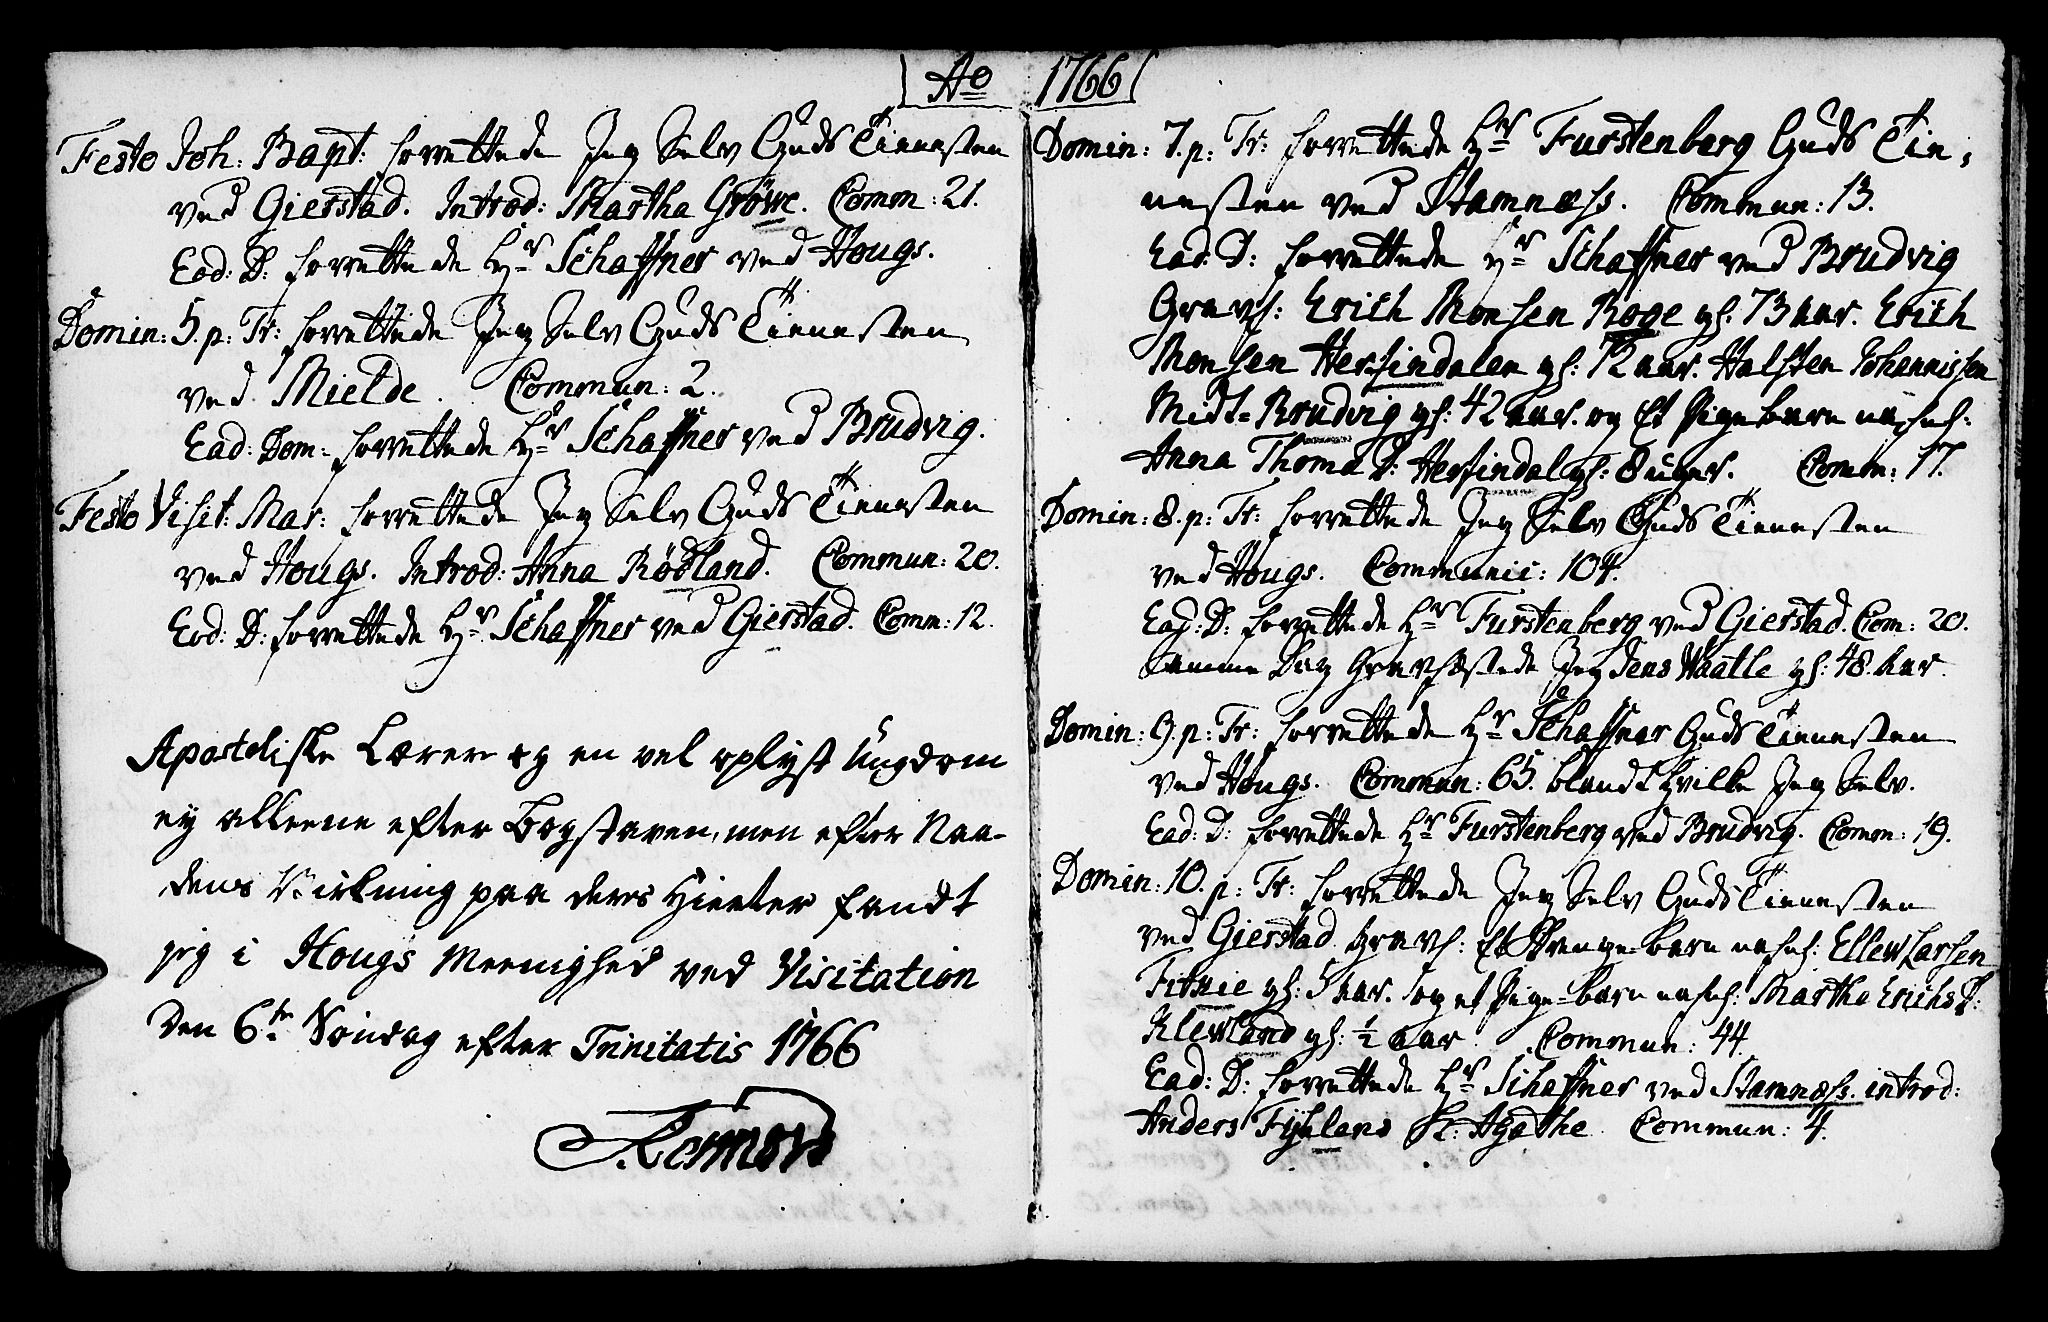 Ao 1766
Festo Joh: Bapt: forrettede Jeg Selv Guds Tienesten
ved Gierstad. Introd: Martha Gröwe. Comm: 21.
Eod: D: forrettede Hr Schaffner ved Hougs.
Domin: 5. p: Tr: forrettede Jeg Selv Guds Tienesten
ved Mielde. Commun: 2.
Ead: Dom: forrettede Hr Schaffner ved Brudvig.
Festo Visit: Mar: forrettede Jeg Selv Guds Tienesten
ved Hougs. Introd: Anna Rödland. Commun: 20.
Eod: D: forrettede Hr Schaffner ved Gierstad. Comm: 12.
Apostoliske Lærer og en vel oplyst Ungdom
ey alleene efter Bogstaven, men efter Naa-
dens Virkning paa deres Hierter fandt
jeg i Hougs Meenighed ved Visitation
Den 6te Söndag efter Trinitatis 1766
Domin: 7. p: Tr: forrettede Hr Furstenberg Guds Tie-
nesten ved Stamnæss. Commun: 13.
Ead: D: forrettede Hr Schaffner ved Brudvig
Gravf: Erich Monsen Roge gl: 73 aar. Erich
Monsen Hersindalen gl: 72 aar. Halsten Johannissen
Midt-Brudvig gl: 42 aar. og Et Pigebarn nafnl:
Anna Thoma D: Hersindal gl: 8 uger. Comm: 17.
Domin: 8. p: Tr: forrettede Jeg Selv Guds Tienesten
ved Hougs. Communic: 104.
Ead: D: forrettede Hr Furstenberg ved Gierstad. Com: 20.
Samme Dag Gravfæstede Jeg Jens Waatle gl: 48 Aar.
Domin: 9. p: Tr: forrettede Hr Schaffner Guds Tienesten
ved Hougs. Commun: 65. blandt hvilke Jeg Selv.
Ead: D: forrettede Hr Furstenberg ved Brudvig. Comm: 19.
Domin: 10. p: Tr: forrettede Jeg Selv Guds Tienesten
ved Gierstad. Gravf: Et Drenge-barn nafnl: Ellew Larsen
gl: 5 aar. og et Pige-barn nafnl: Martha Erichs D:
Klewland gl: ½ Aar. Commun: 44.
Ead: D: forrettede Hr Schaffner ved Stamnæss. introd:
Anders Agathe. Commun: 4.